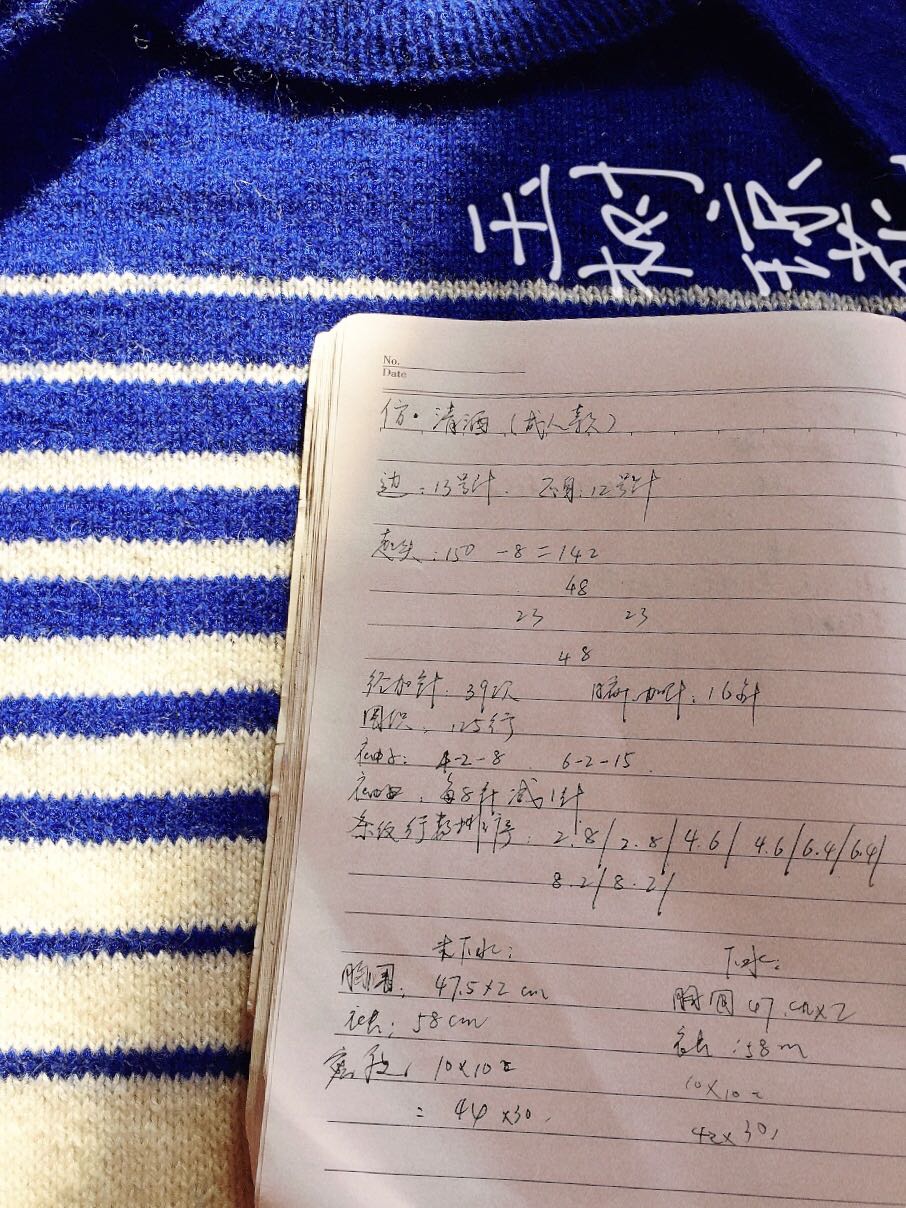 No.
Date
仿·清酒(成人款)
边:13号针. 不用:12号针
起头:150 -8=142
48
23 23
48
径加针:39次 腋加针:16针
圈织:125行
衣袖: 4-2-8 6-2-15
每8针减1针
条纹行数 序号: 2.8/2.8/4.6/4.6/6.4/6.4/
8.2/8.2/
未下水: 下水:
胸围:47.5×2cm 胸围47.cm×2
衣长:58cm 衣长:58m
密度:10×10= 10×10=
=44×30. 42×30,